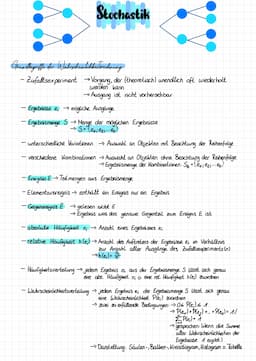 Stochastik
Grundbegriffe der Wahrscheinlichkeitsrechnung
- Zufallsexperiment → Vorgang, der (theoretisch) unendlich oft wiederholt
werden kann
→ Ausgang ist nicht vorhersehbar
- Ergebnisse eᵢ → mögliche Ausgänge
- Ergebnismenge S → Menge der möglichen Ergebnisse
→ S = {e₁, e₂, ... eₙ}
- unterschiedliche Variationen → Auswahl an Objekten mit Beachtung der Reihenfolge
- verschiedene Kombinationen → Auswahl an Objekten ohne Beachtung der Reihenfolge
→ Ergebnismenge der Kombinationen
- Ereignis E → Teilmengen aus Ergebnismenge
- Elementarereignis → enthält ein Ereignis nur ein Ergebnis
- Gegenereignis E → gelesen nicht E
→ Ergebnis was das genaue Gegenteil zum Ereignis E ist
- absolute Häufigkeit → Anzahl eines Ergebnisses
- relative Häufigkeit → Anzahl des Auftretens der Ergebnisse eᵢ im Verhältnis
zur Anzahl aller Ausgänge des Zufallsexperiments (n)
- Häufigkeitsverteilung → jedem Ergebnis eᵢ aus der Ergebnismenge S lässt sich genau
eine abs. Häufigkeit o. eine rel. Häufigkeit zuordnen
- Wahrscheinlichkeitsverteilung → jedem Ergebnis eᵢ der Ergebnismenge S lässt sich genau
eine Wahrscheinlichkeit P(eᵢ) zuordnen
→ zwei zu erfüllende Bedingungen → 0 ≤ P(eᵢ) ≤ 1
→ P(e₁) + P(e₂) + ... + P(eₙ) = 1
→ gesprochen: Wenn die Summe
aller Wahrscheinlichkeiten der
Ergebnisse 1 ergibt
→ Darstellung: Säulen-, Balken-, Kreisdiagramm, Histogramm o. Tabelle